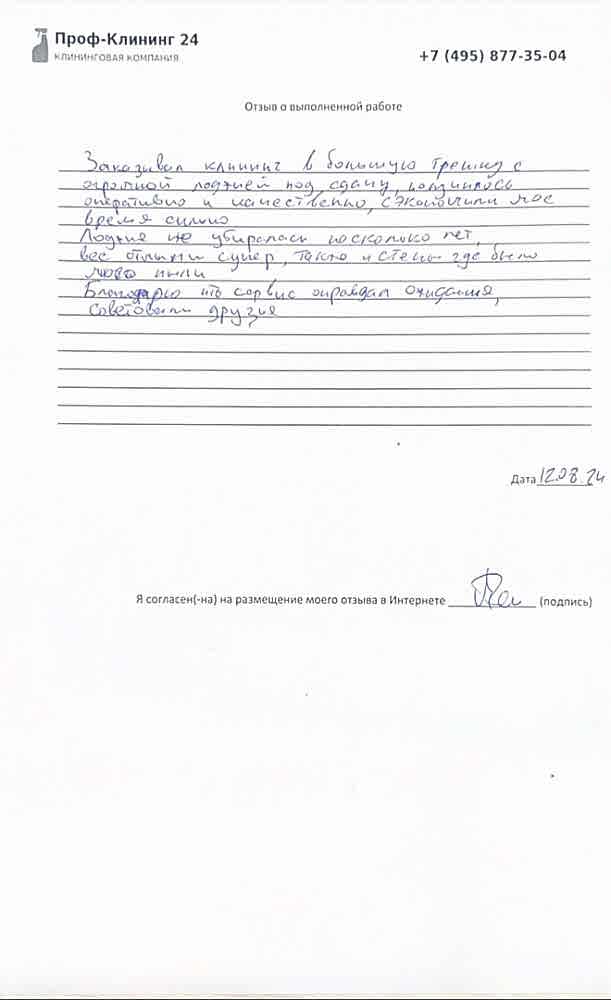 Проф-Клининг 24
КЛИНИНГОВАЯ КОМПАНИЯ
+7 (495) 877-35-04
Отзыв о выполненной работе
Заказывал клининг в большую трешку с
огромной лоджией под сдачу, получилось
оперативно и качественно, сэкономили мое
время сильно
Лоджия не убиралась несколько лет,
все отмыли супер, также и стены где было
много пыли
Благодарю что сервис оправдал ожидания,
советовали друзья
Дата 12.08.24
Я согласен(-на) на размещение моего отзыва в Интернете (подпись)